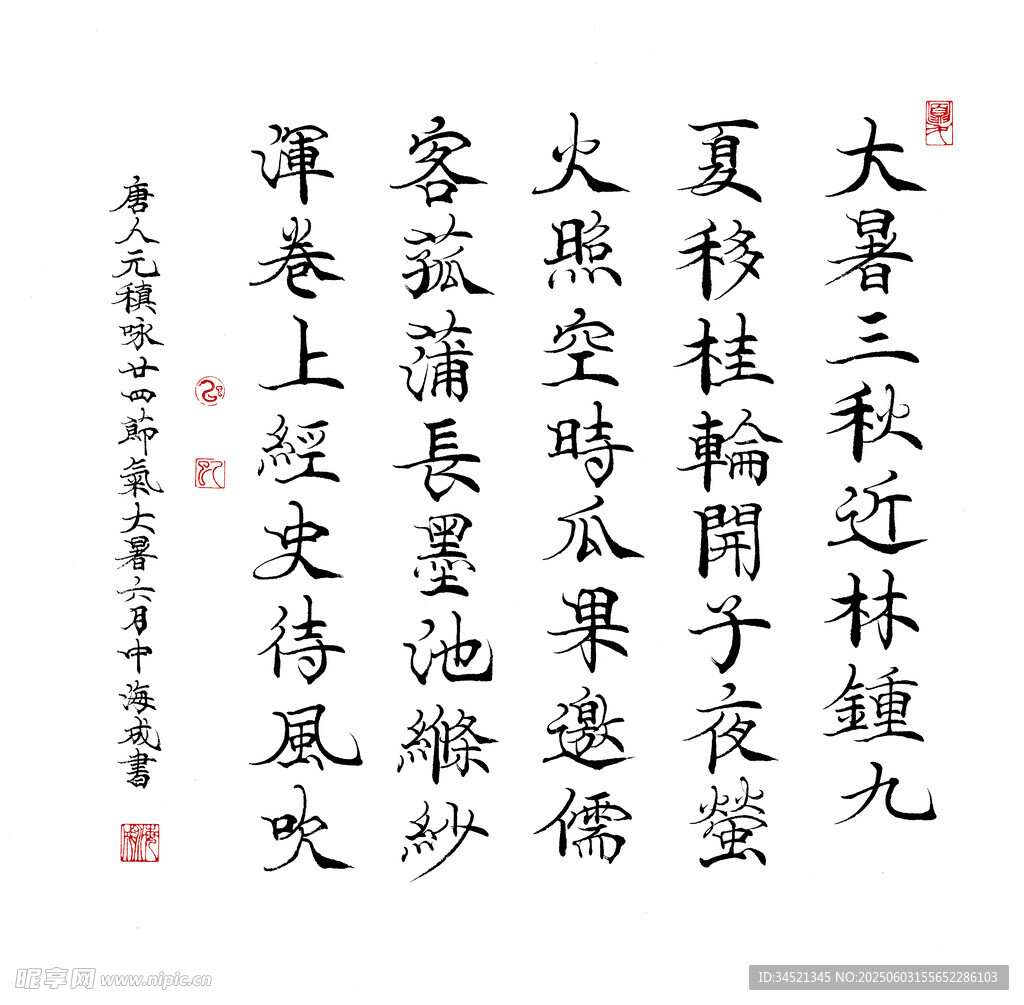 大暑三秋近林鍾九
夏移桂輪開子夜螢
火照空時瓜果邀儒
客菰蒲長墨池縧紗
渾卷上經史待風吹
唐人元稹咏廿四節氣大暑六月中海成書
昵享网 www.nipic.cn
ID:34521345 NO:20250603155652286103